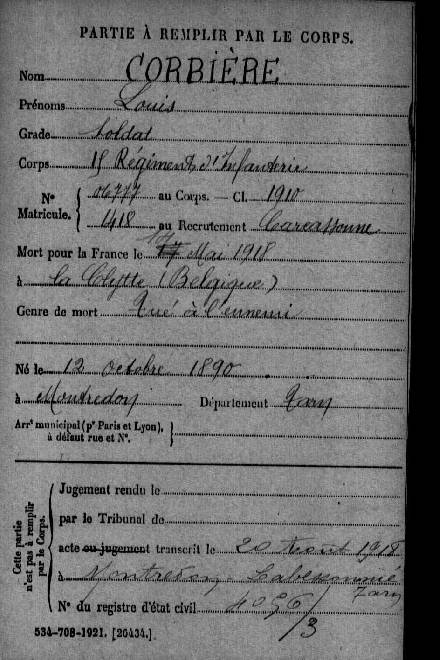 PARTIE À REMPLIR PAR LE CORPS.
Nom CORBIÈRE
Prénoms Louis
Grade Soldat
Corps 15 Régiment d'Infanterie
N° Matricule. { 06777 au Corps. — Cl. 1910
1418 au Recrutement Carcassonne
Mort pour la France le 17 Mai 1918
à La Clytte (Belgique)
Genre de mort Tué à l'ennemi
Né le 12 octobre 1890
à Montredon Département Tarn
Arrt municipal (pr Paris et Lyon), à défaut rue et N°. }
Cette partie n'est pas à remplir par le Corps.
Jugement rendu le
par le Tribunal de
acte ou jugement transcrit le 20 Août 1918
à Montredon-Labessonnié
Tarn
N° du registre d'état civil
534-708-1921. [26434.]